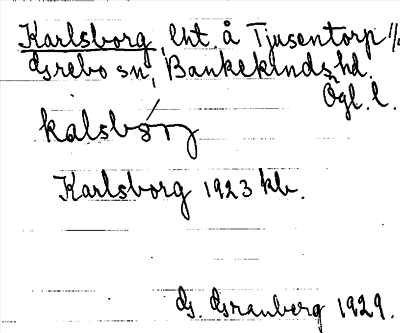 Karlsborg, lht. å Tjusentorp 1/
Grebo sn, Bankekinds hd.
Ögl. l.
kálsbǫrj
Karlsborg 1923 kb.
G. Granberg 1929.